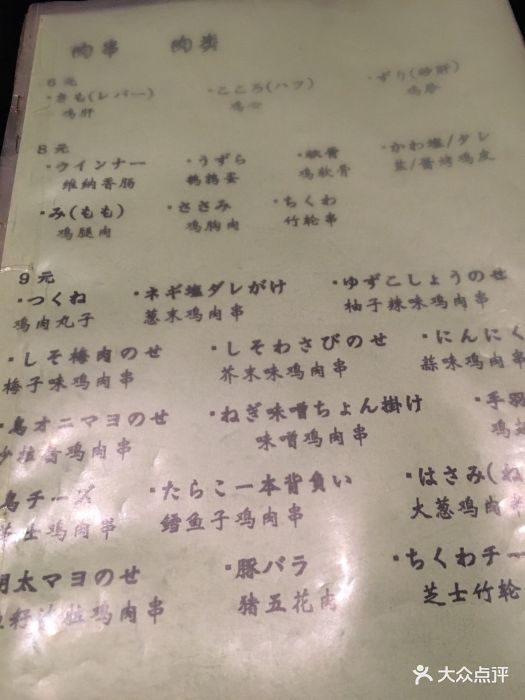 肉串 肉类
6元
·きも(レバー) ·こころ(ハツ) ·ずり(砂肝)
鸡肝 鸡心 鸡胗
8元
·ウインナー ·うずら ·軟骨 ·かわ塩/タレ
维纳香肠 鹌鹑蛋 鸡软骨 盐/酱烤鸡皮
·み(もも) ·ささみ ·ちくわ
鸡腿肉 鸡胸肉 竹轮串
9元
·つくね ·ネギ塩ダレがけ ·ゆずこしょうのせ
鸡肉丸子 葱末鸡肉串 柚子辣味鸡肉串
·しそ梅肉のせ ·しそわさびのせ ·にんにく
梅子味鸡肉串 芥末味鸡肉串 蒜味鸡肉串
鳥オニマヨのせ ·ねぎ味噌ちょん掛け ·手羽
鸡肉串 味噌鸡肉串 鸡
鳥チーズ ·たらこ一本背負い ·はさみ(ね
芝士鸡肉串 鳕鱼子鸡肉串 大葱鸡肉
明太マヨのせ ·豚バラ ·ちくわチー
籽沙拉鸡肉串 猪五花肉 芝士竹轮
大众点评